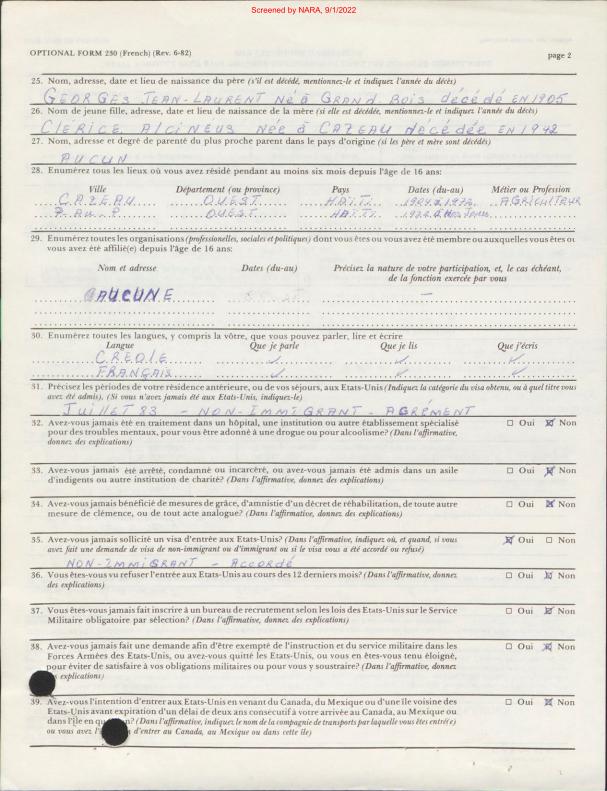 Screened by NARA, 9/1/2022
OPTIONAL FORM 230 (French) (Rev. 6-82) page 2
25. Nom, adresse, date et lieu de naissance du père (s'il est décédé, mentionnez-le et indiquez l'année du décès)
GEORGES JEAN-LAURENT Né à GRAND BOIS décédé EN 1905
26. Nom de jeune fille, adresse, date et lieu de naissance de la mère (si elle est décédée, mentionnez-le et indiquez l'année du décès)
CLERICE ALCINEUS Née à CAZEAU décédée EN 1942
27. Nom, adresse et degré de parenté du plus proche parent dans le pays d'origine (si les père et mère sont décédés)
AUCUN
28. Enumérez tous les lieux où vous avez résidé pendant au moins six mois depuis l'âge de 16 ans:
Ville Département (ou province) Pays Dates (du-au) Métier ou Profession
CAZEAU OUEST HAITI 1904 à 1972 AGRICULTEUR
P. Au. P OUEST HAITI 1972 à
29. Enumérez toutes les organisations (professionelles, sociales et politiques) dont vous êtes ou vous avez été membre ou auxquelles vous êtes ou
vous avez été affilié(e) depuis l'âge de 16 ans:
Nom et adresse Dates (du-au) Précisez la nature de votre participation, et, le cas échéant,
de la fonction exercée par vous
AUCUNE —
30. Enumérez toutes les langues, y compris la vôtre, que vous pouvez parler, lire et écrire
Langue Que je parle Que je lis Que j'écris
CREOLE ✓ ✓ ✓
FRANÇAIS ✓ ✓ ✓
31. Précisez les périodes de votre résidence antérieure, ou de vos séjours, aux Etats-Unis (Indiquez la catégorie du visa obtenu, ou à quel titre vous
avez été admis). (Si vous n'avez jamais été aux Etats-Unis, indiquez-le)
JUILLET 83 - NON-IMMIGRANT - AGRÉMENT
32. Avez-vous jamais été en traitement dans un hôpital, une institution ou autre établissement spécialisé ☐ Oui ☒ Non
pour des troubles mentaux, pour vous être adonné à une drogue ou pour alcoolisme? (Dans l'affirmative,
donnez des explications)
33. Avez-vous jamais été arrêté, condamné ou incarcéré, ou avez-vous jamais été admis dans un asile ☐ Oui ☒ Non
d'indigents ou autre institution de charité? (Dans l'affirmative, donnez des explications)
34. Avez-vous jamais bénéficié de mesures de grâce, d'amnistie d'un décret de réhabilitation, de toute autre ☐ Oui ☒ Non
mesure de clémence, ou de tout acte analogue? (Dans l'affirmative, donnez des explications)
35. Avez-vous jamais sollicité un visa d'entrée aux Etats-Unis? (Dans l'affirmative, indiquez où, et quand, si vous ☒ Oui ☐ Non
avez fait une demande de visa de non-immigrant ou d'immigrant ou si le visa vous a été accordé ou refusé)
NON-IMMIGRANT - Accordé
36. Vous êtes-vous vu refuser l'entrée aux Etats-Unis au cours des 12 derniers mois? (Dans l'affirmative, donnez ☐ Oui ☒ Non
des explications)
37. Vous êtes-vous jamais fait inscrire à un bureau de recrutement selon les lois des Etats-Unis sur le Service ☐ Oui ☒ Non
Militaire obligatoire par sélection? (Dans l'affirmative, donnez des explications)
38. Avez-vous jamais fait une demande afin d'être exempté de l'instruction et du service militaire dans les ☐ Oui ☒ Non
Forces Armées des Etats-Unis, ou avez-vous quitté les Etats-Unis, ou vous en êtes-vous tenu éloigné,
pour éviter de satisfaire à vos obligations militaires ou pour vous y soustraire? (Dans l'affirmative, donnez
explications)
39. Avez-vous l'intention d'entrer aux Etats-Unis en venant du Canada, du Mexique ou d'une île voisine des ☐ Oui ☒ Non
Etats-Unis avant expiration d'un délai de deux ans consécutif à votre arrivée au Canada, au Mexique ou
dans l'île en question? (Dans l'affirmative, indiquez le nom de la compagnie de transports par laquelle vous êtes entré(e)
ou vous avez d'entrer au Canada, au Mexique ou dans cette île)